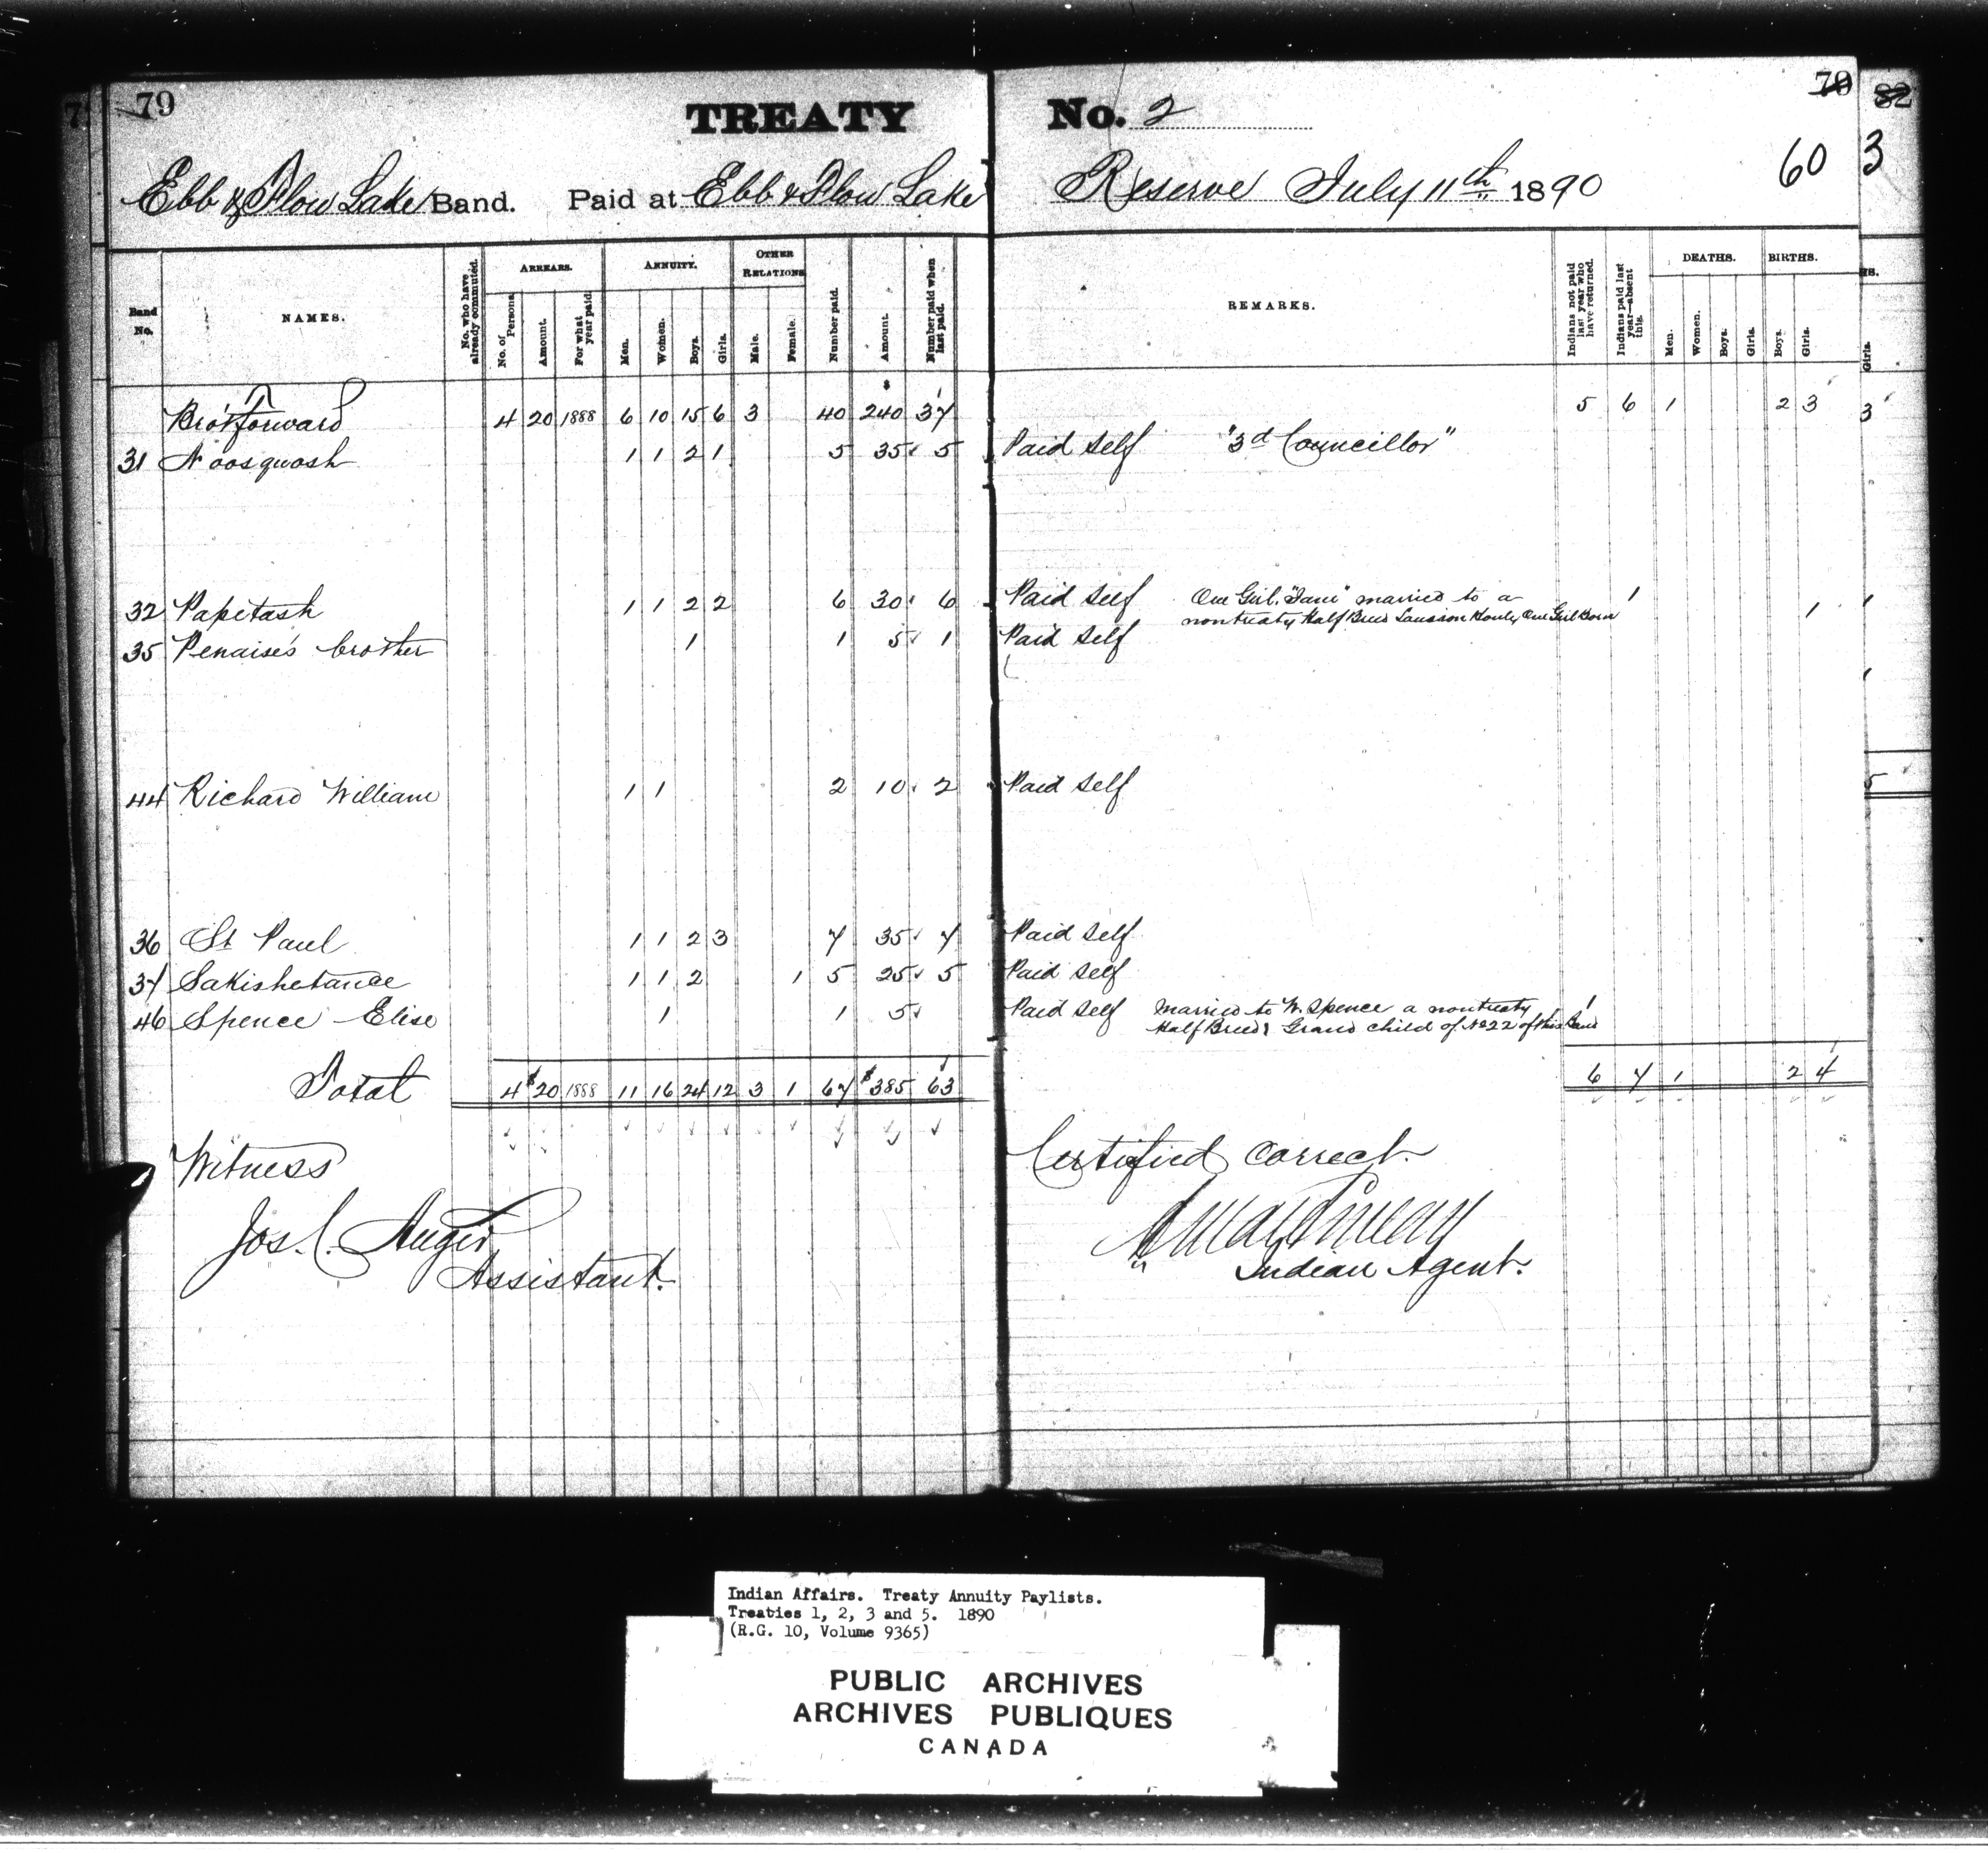 79 TREATY No. 2 79 82
60 3
Ebb & Flow Lake Band. Paid at Ebb & Flow Lake Reserve July 11th 1890
Band No. NAMES. No. who have already commuted. ARREARS. No. of Persons. Amount. For what year paid. ANNUITY. Men. Women. Boys. Girls. OTHER RELATIONS Male. Female. Number paid. Amount. Number paid when last paid. REMARKS. Indians not paid last year who have returned. Indians paid last year—absent this. DEATHS. Men. Women. Boys. Girls. BIRTHS. Boys. Girls. Girls.
Bro't forward 4 20 1888 6 10 15 6 3 40 $240 37 5 6 1 2 3 3
31 Noosquosh 1 1 2 1 5 35 5 Paid self "3d Councillor"
32 Papetash 1 1 2 2 6 30 6 Paid self One Girl "Jane" married to a 1 1
nontreaty Half Breed One Girl Born
35 Penaise's brother 1 1 5 1 Paid self
44 Richard William 1 1 2 10 2 Paid self
5
36 St Paul 1 1 2 3 7 35 7 Paid self
37 Sakishetance 1 1 2 1 5 25 5 Paid self
46 Spence Elise 1 1 5 Paid self Married to W. Spence a nontreaty 1
Half Breed & Grand Child of No 22 of this Band
Total 4 $20 1888 11 16 24 12 3 1 67 $385 63 6 7 1 2 4
Witness Certified Correct.
Jos. C. Auger
Assistant. Indian Agent.
Indian Affairs. Treaty Annuity Paylists.
Treaties 1, 2, 3 and 5. 1890
(R.G. 10, Volume 9365)
PUBLIC ARCHIVES
ARCHIVES PUBLIQUES
CANADA